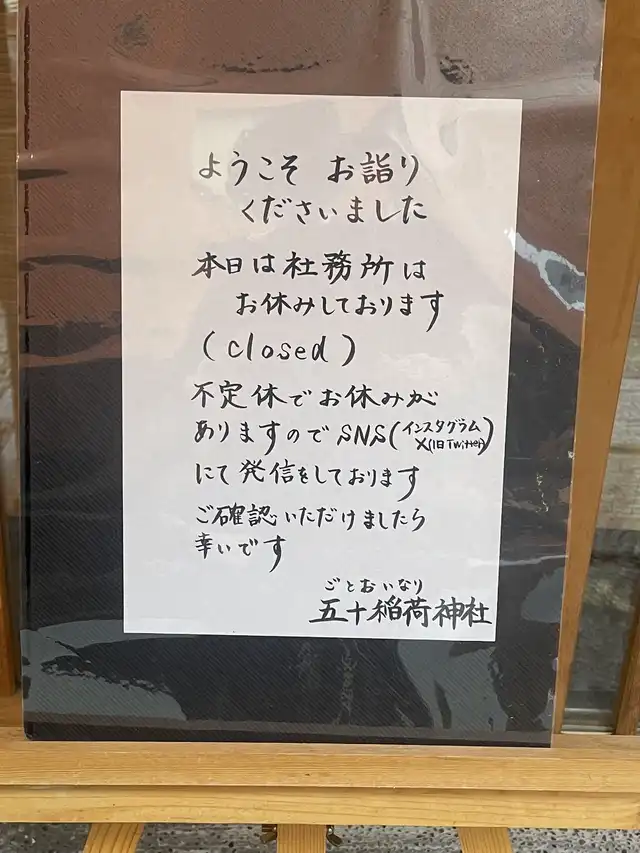 ようこそ お詣り
くださいました
本日は社務所は
お休みしております
(closed)
不定休でお休みが
ありますのでSNS(インスタグラム
X(旧Twitter))
にて発信をしております
ご確認いただけましたら
幸いです
ごとおいなり
五十稲荷神社